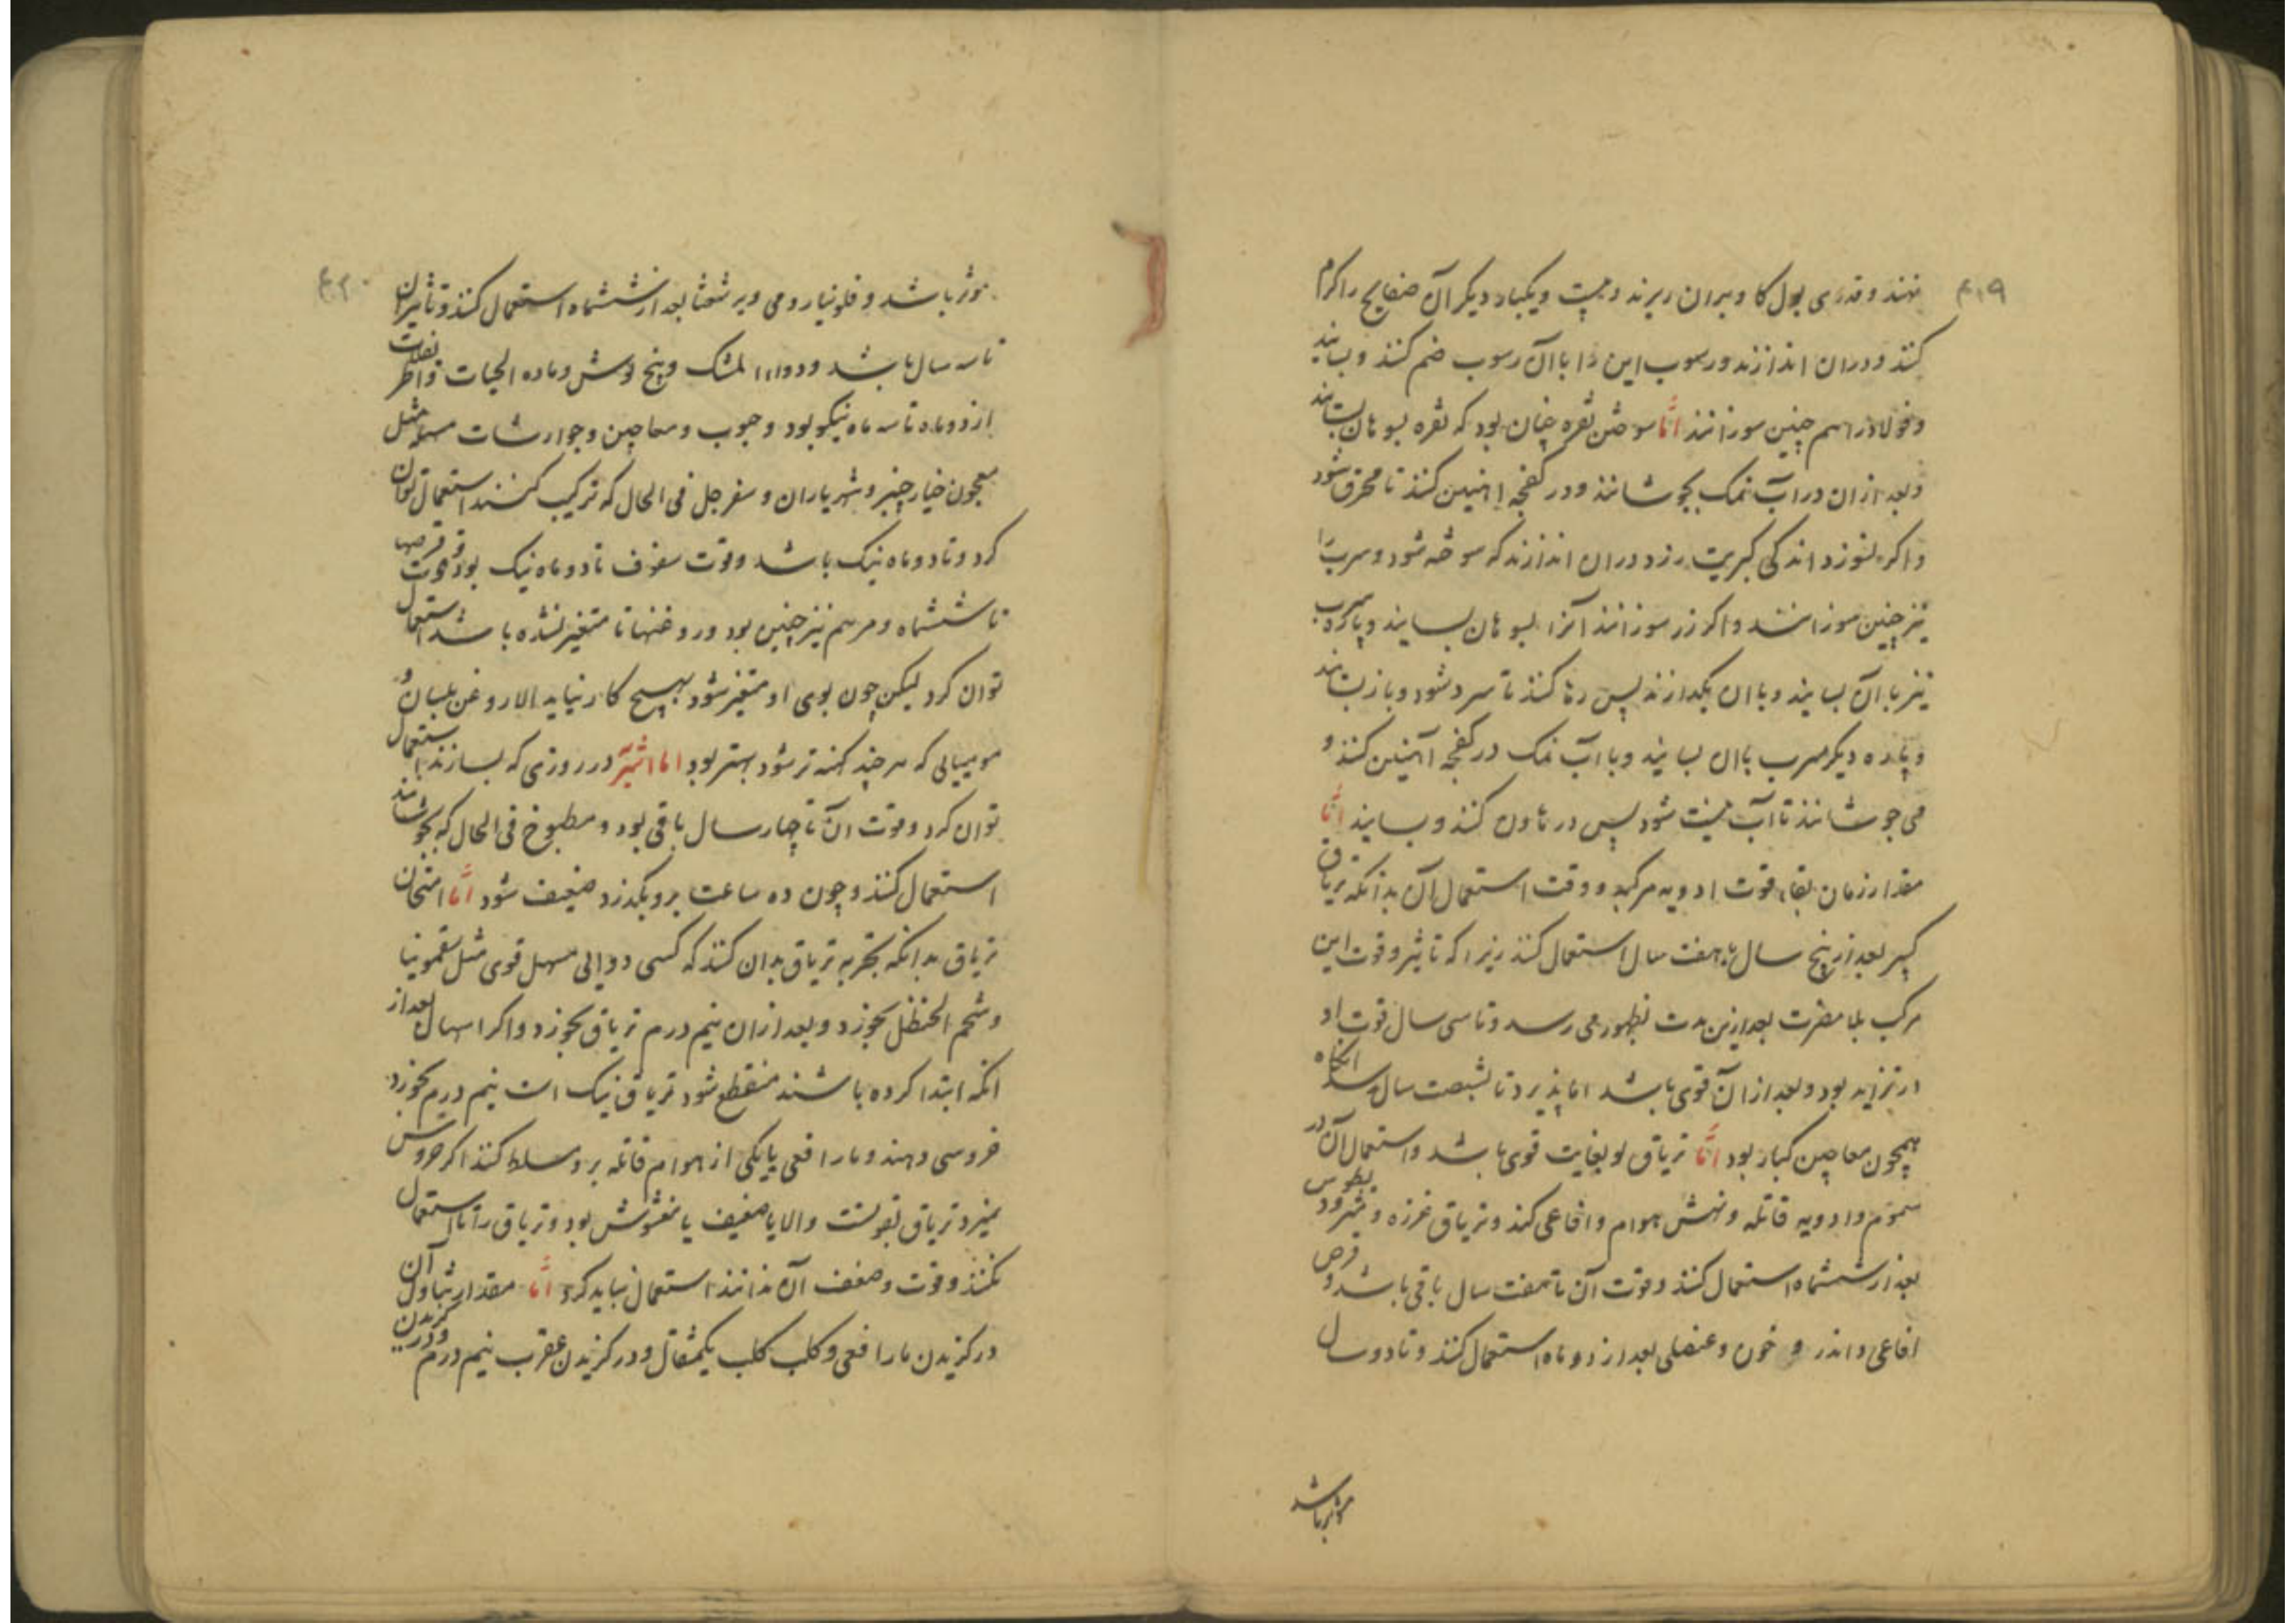 ۴۱۹
نهند و قدری بول کاو بران ریزند و یکبار دیکر آن صفایح را کرم
کنند و دران اندازند و رسوب این را با آن رسوب ضم کنند و بسایند
و فولاد را هم چنین سوزانند اما سوختن نقره چنان بود که نقره بسوهان بسایند
و بعد ازان در آب نمک بجوشانند و در کفچه اهنین کنند تا محرق شود
و اکر نسوزد اندکی کبریت زرد دران اندازند که سوخته شود و سرب را
نیز چنین سوزانند و اکر زر سوزانند آنرا بسوهان بسایند و پاره سرب
نیز با آن بسایند و با ان بکدازند پس رها کنند تا سرد شود و باز بسایند
و پاره دیکر سرب با ان بسایند و با آب نمک در کفچه آهنین کنند و
می جوشانند تا آب نیست شود پس در هاون کنند و بسایند اما
مقدار زمان بقاء قوت ادویه مرکبه و وقت استعمال آن بدانکه تریاق
کبیر بعد از پنج سال تا هفت سال استعمال کنند زیرا که تاثیر و قوت این
مرکب بلا مضرت بعد ازین مدت بظهور می رسد و تا سی سال قوت او
در تزاید بود و بعد از آن قوی باشد اما پذیرد تا بشصت سال رسد انکاه
همچون معاجین کبار بود اما تریاق لو بغایت قوی باشد و استعمال آن در
سموم و ادویه قاتله و نهش هوام و افاعی کند و تریاق عزره و مثرودیطوس
بعد از ششماه استعمال کنند و قوت آن تا هفت سال باقی باشد و قرص
افاعی و اندر و خون و عنصلی بعد از دو ماه استعمال کنند و تا دو سال
موثر باشد
۴۲۰
موثر باشد و فلونیا رومی و برشعثا بعد از ششماه استعمال کنند و تاثیر ان
تا سه سال باشد و دواء المشک و پنج نوش و ماده الحیات و اطریفلات
از دو ماه تا سه ماه نیکو بود و حبوب و معاجین و جوارشات مسهله مثل
معجون خیارچنبر و شهریاران و سفرجل فی الحال که ترکیب کنند استعمال توان
کرد و تا دو ماه نیک باشد و قوت سفوف تا دو ماه نیک بود و قوت قرصها
تا ششماه و مرهم نیز چنین بود و روغنها تا متغیر نشده باشد استعمال
توان کرد لیکن چون بوی او متغیر شود بهیچ کار نیاید الا روغن بلسان و
مومیایی که هر چند کهنه تر شود بهتر بود اما اشربه در روزی که بسازند استعمال
توان کرد و قوت ان تا چهار سال باقی بود و مطبوخ فی الحال که بجوشانند
استعمال کنند و چون ده ساعت برو بکذرد ضعیف شود اما امتحان
تریاق بدانکه تجربه تریاق بدان کنند که کسی دوایی مسهل قوی مثل سقمونیا
و شحم الحنظل بخورد و بعد ازان نیم درم تریاق بخورد و اکر اسهال بعد از
انکه ابتدا کرده باشند منقطع شود تریاق نیک است نیم درم بخورد
خروسی دهند و مار افعی یا یکی از هوام قاتله برو مسلط کنند اکر خروس
نمیرد تریاق بقوتست و الا یا ضعیف یا مغشوش بود و تریاق را تا استعمال
نکنند و قوت و ضعف آن ندانند استعمال نباید کرد اما مقدار تناول آن
در کزیدن مار افعی و کلب کلب یکمثقال و در کزیدن عقرب نیم درم و در کزیدن